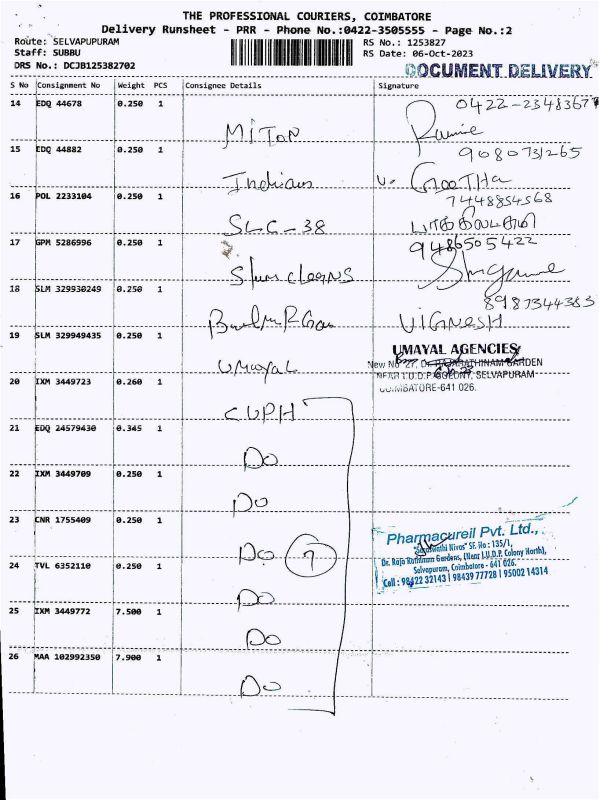 THE PROFESSIONAL COURIERS, COIMBATORE
Delivery Runsheet - PRR - Phone No.:0422-3505555 - Page No.:2
Route: SELVAPUPURAM
RS No.: 1253827
Staff: SUBBU
RS Date: 06-Oct-2023
DRS No.: DCJB125382702
DOCUMENT DELIVERY
S No Consignment No Weight PCS Consignee Details Signature
14 EDQ 44678 0.250 1
0422-2348367
MITON
15 EDQ 44882 0.250 1
9080731265
Indians
16 POL 2233104 0.250 1
7448854568
SLC-38
17 GPM 5286996 0.250 1
9486505422
18 SLM 329930249 0.250 1
8987344383
VIGNESH
19 SLM 329949435 0.250 1
UMAYAL AGENCIES
UMAYAL
New No 27, GARDEN
NEAR I.U.D.P. COLONY, SELVAPURAM
COIMBATORE-641 026.
20 IXM 3449723 0.260 1
CUPH
21 EDQ 24579430 0.345 1
DO
22 IXM 3449709 0.250 1
DO
23 CNR 1755409 0.250 1
Pharmacureil Pvt. Ltd.,
"Saraswathi Nivas" SF. No : 135/1,
DO 7
Dr. Raja Rathinam Gardens, (Near I.U.D.P. Colony North),
Selvapuram, Coimbatore - 641 026.
24 TVL 6352110 0.250 1
Cell : 98422 32143 | 98439 77728 | 95002 14314
DO
25 IXM 3449772 7.500 1
DO
26 MAA 102992350 7.900 1
DO